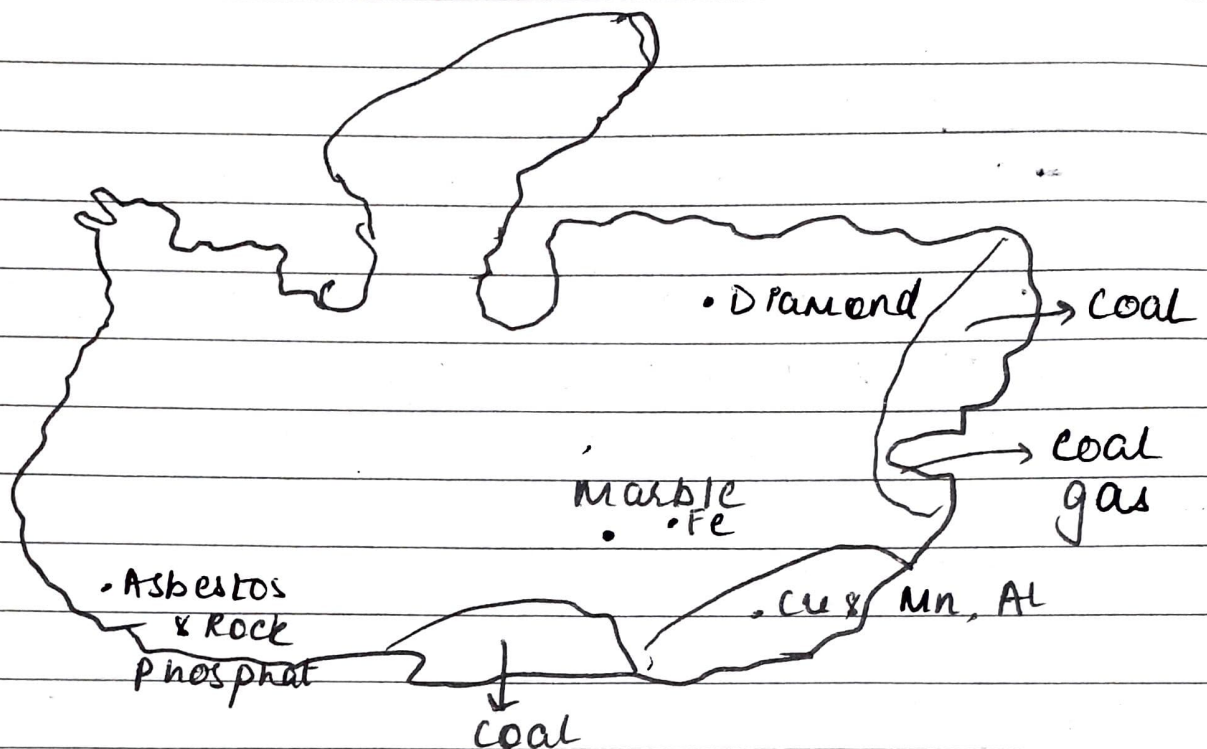 • Diamond
coal
coal
gas
Marble
• Fe
• Asbestos
& Rock
Phosphat
• Cu & Mn, Al
coal